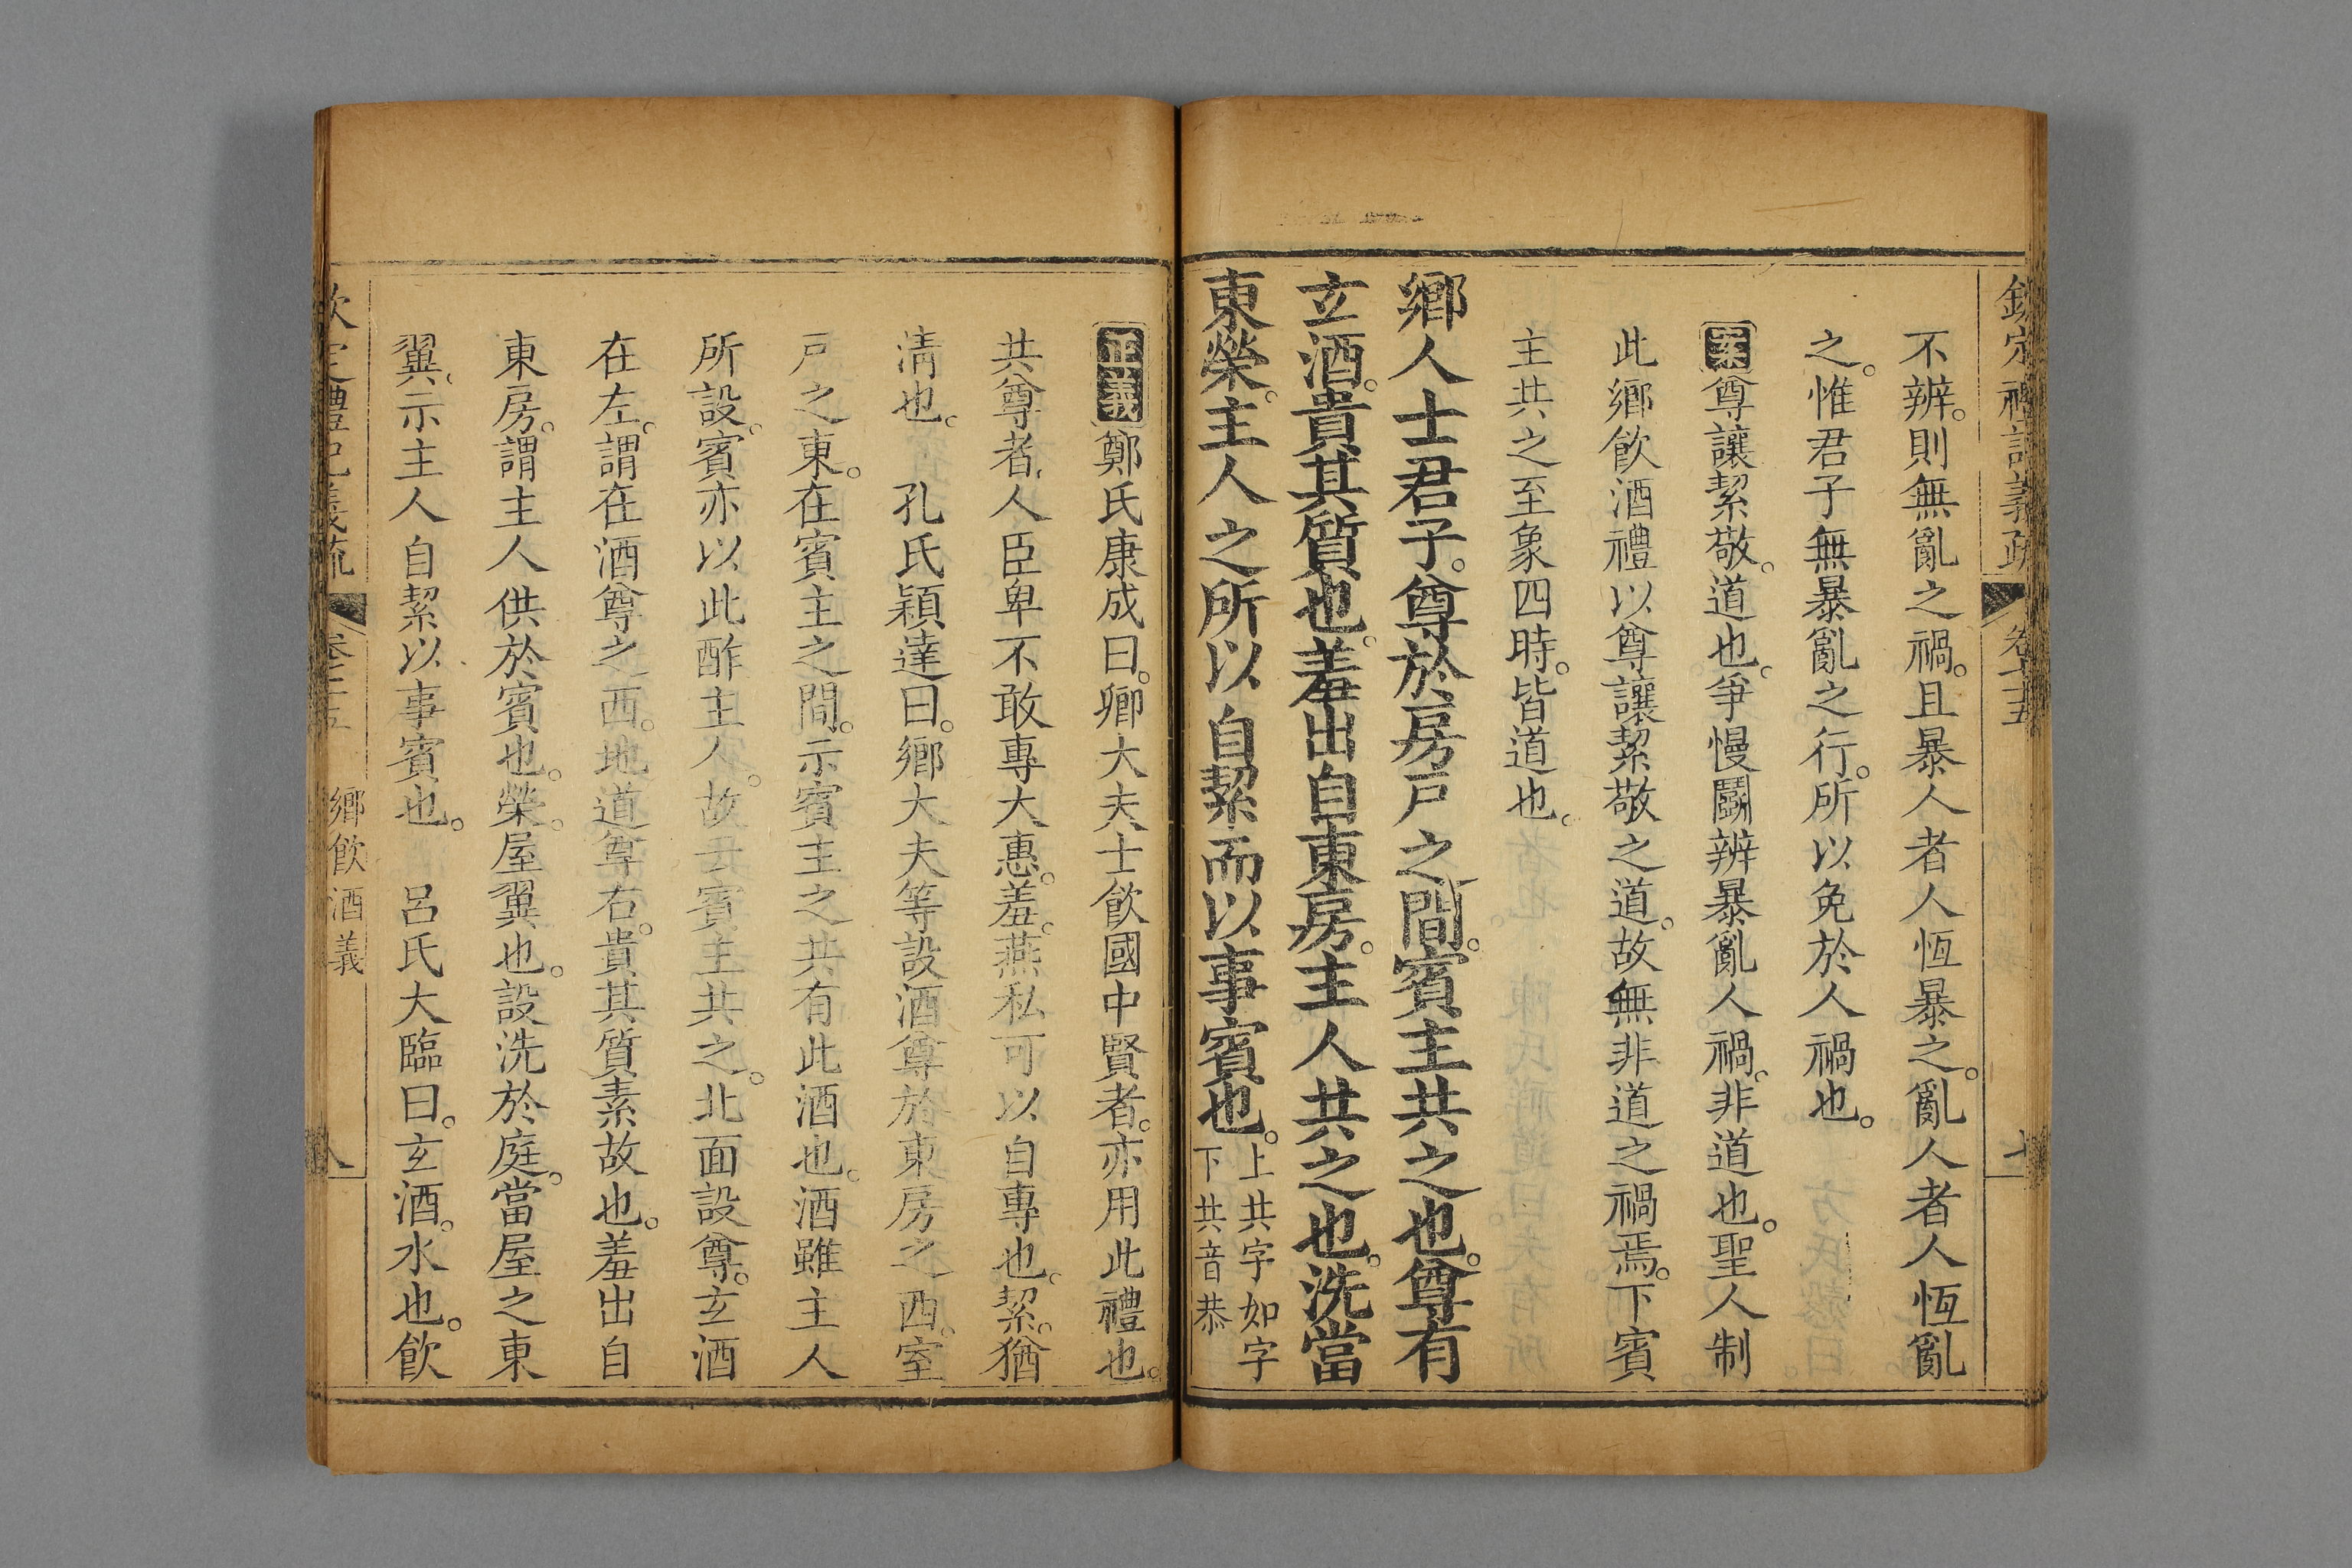 欽定禮記義疏 卷七十五 七
不辨。則無亂之禍。且暴人者人恆暴之。亂人者人恆亂
之。惟君子無暴亂之行。所以免於人禍也。
案尊讓絜敬。道也。爭慢鬬辨暴亂人禍。非道也。聖人制
此鄉飲酒禮以尊讓絜敬之道。故無非道之禍焉。下賓
主共之至象四時。皆道也。
鄉人士君子。尊於房戶之間。賓主共之也。尊有
玄酒。貴其質也。羞出自東房。主人共之也。洗當
東榮。主人之所以自絜而以事賓也。上共字如字下共音恭
正義鄭氏康成曰。鄉大夫士飲國中賢者。亦用此禮也。
共尊者。人臣卑不敢專大惠。羞。燕私可以自專也。絜。猶
淸也。 孔氏穎達曰。鄉大夫等設酒尊於東房之西。室
戶之東。在賓主之間。示賓主之共有此酒也。酒雖主人
所設。賓亦以此酢主人。故云賓主共之。北面設尊。玄酒
在左。謂在酒尊之西。地道尊右。貴其質素故也。羞出自
東房。謂主人供於賓也。榮。屋翼也。設洗於庭。當屋之東
翼、示主人自絜以事賓也。 呂氏大臨曰。玄酒。水也。飲
欽定禮記義疏 鄉飲酒義 八